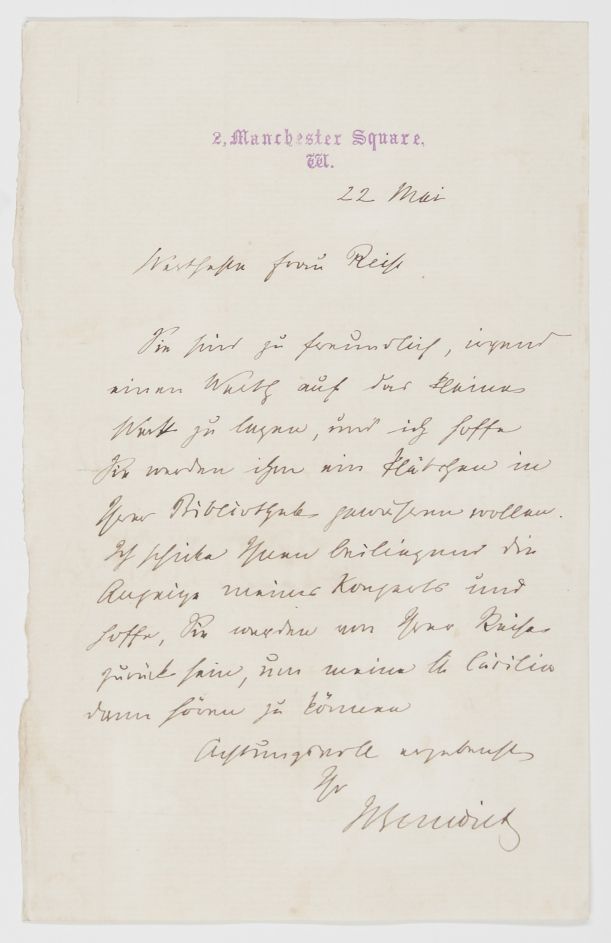 2, Manchester Square,
W.
22 Mai
Wertheste Frau Reiß
Sie sind zu freundlich, irgend
einen Werth auf das kleine
Werk zu legen, und ich hoffe
Sie werden ihm ein Plätzchen in
Ihrer Bibliothek gewähren wollen.
Ich schicke Ihnen beiliegend die
Anzeige meines Konzerts und
hoffe, Sie werden von Ihrer Reise
zurück sein, um meine St Cäcilia
dann hören zu können
Achtungsvoll ergebenst
Ihr
JBenedict